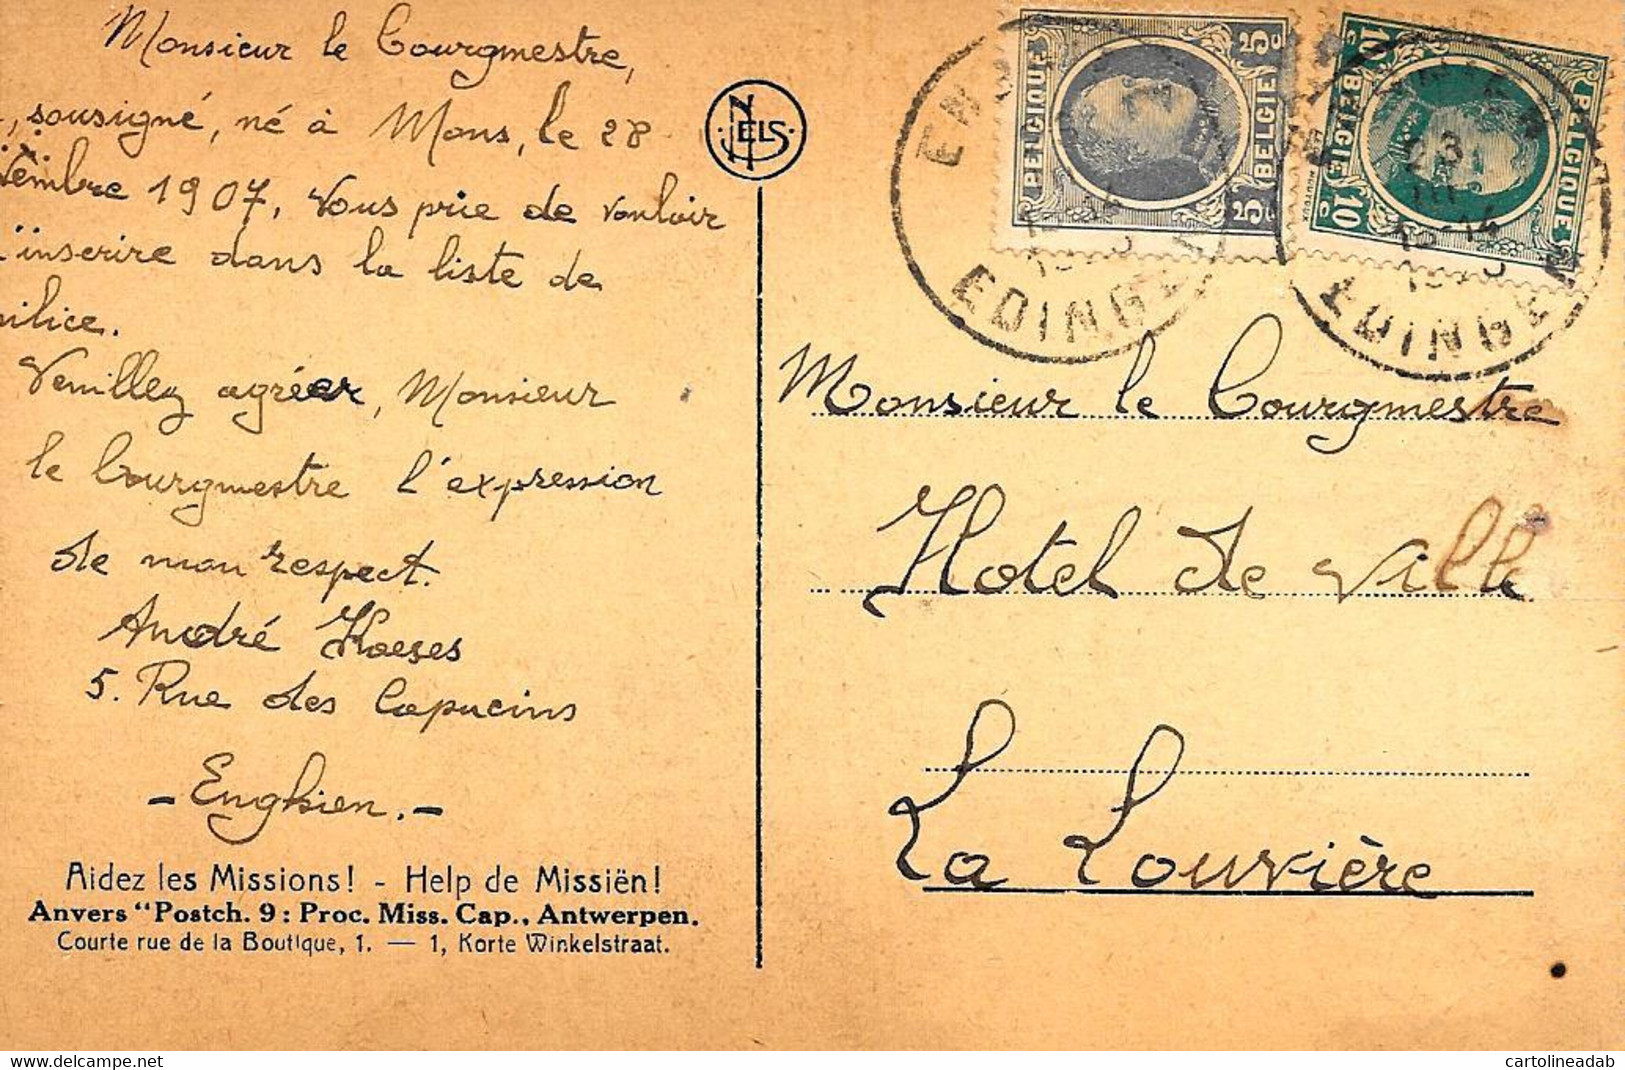 Monsieur le Bourgmestre,
, sousigné, né à Mons, le 28
vembre 1907, Vous prie de vouloir
l'inscrire dans la liste de
milice.
Veuillez agréer, Monsieur
le Bourgmestre l'expression
de mon respect.
André Haeses
5. Rue des Capucins
- Enghien. -
Aidez les Missions! - Help de Missiën!
Anvers "Postch. 9: Proc. Miss. Cap., Antwerpen.
Courte rue de la Boutique, 1. — 1, Korte Winkelstraat.
NELS
BELGIQUE
5c
BELGIE
5c
10c
BELGIE
10c
BELGIQUE
EDINGEN
23
III
13-14
EDINGEN
Monsieur le Bourgmestre
Hotel de Ville
La Louvière
https://www.delcampe.net
cartolineadab